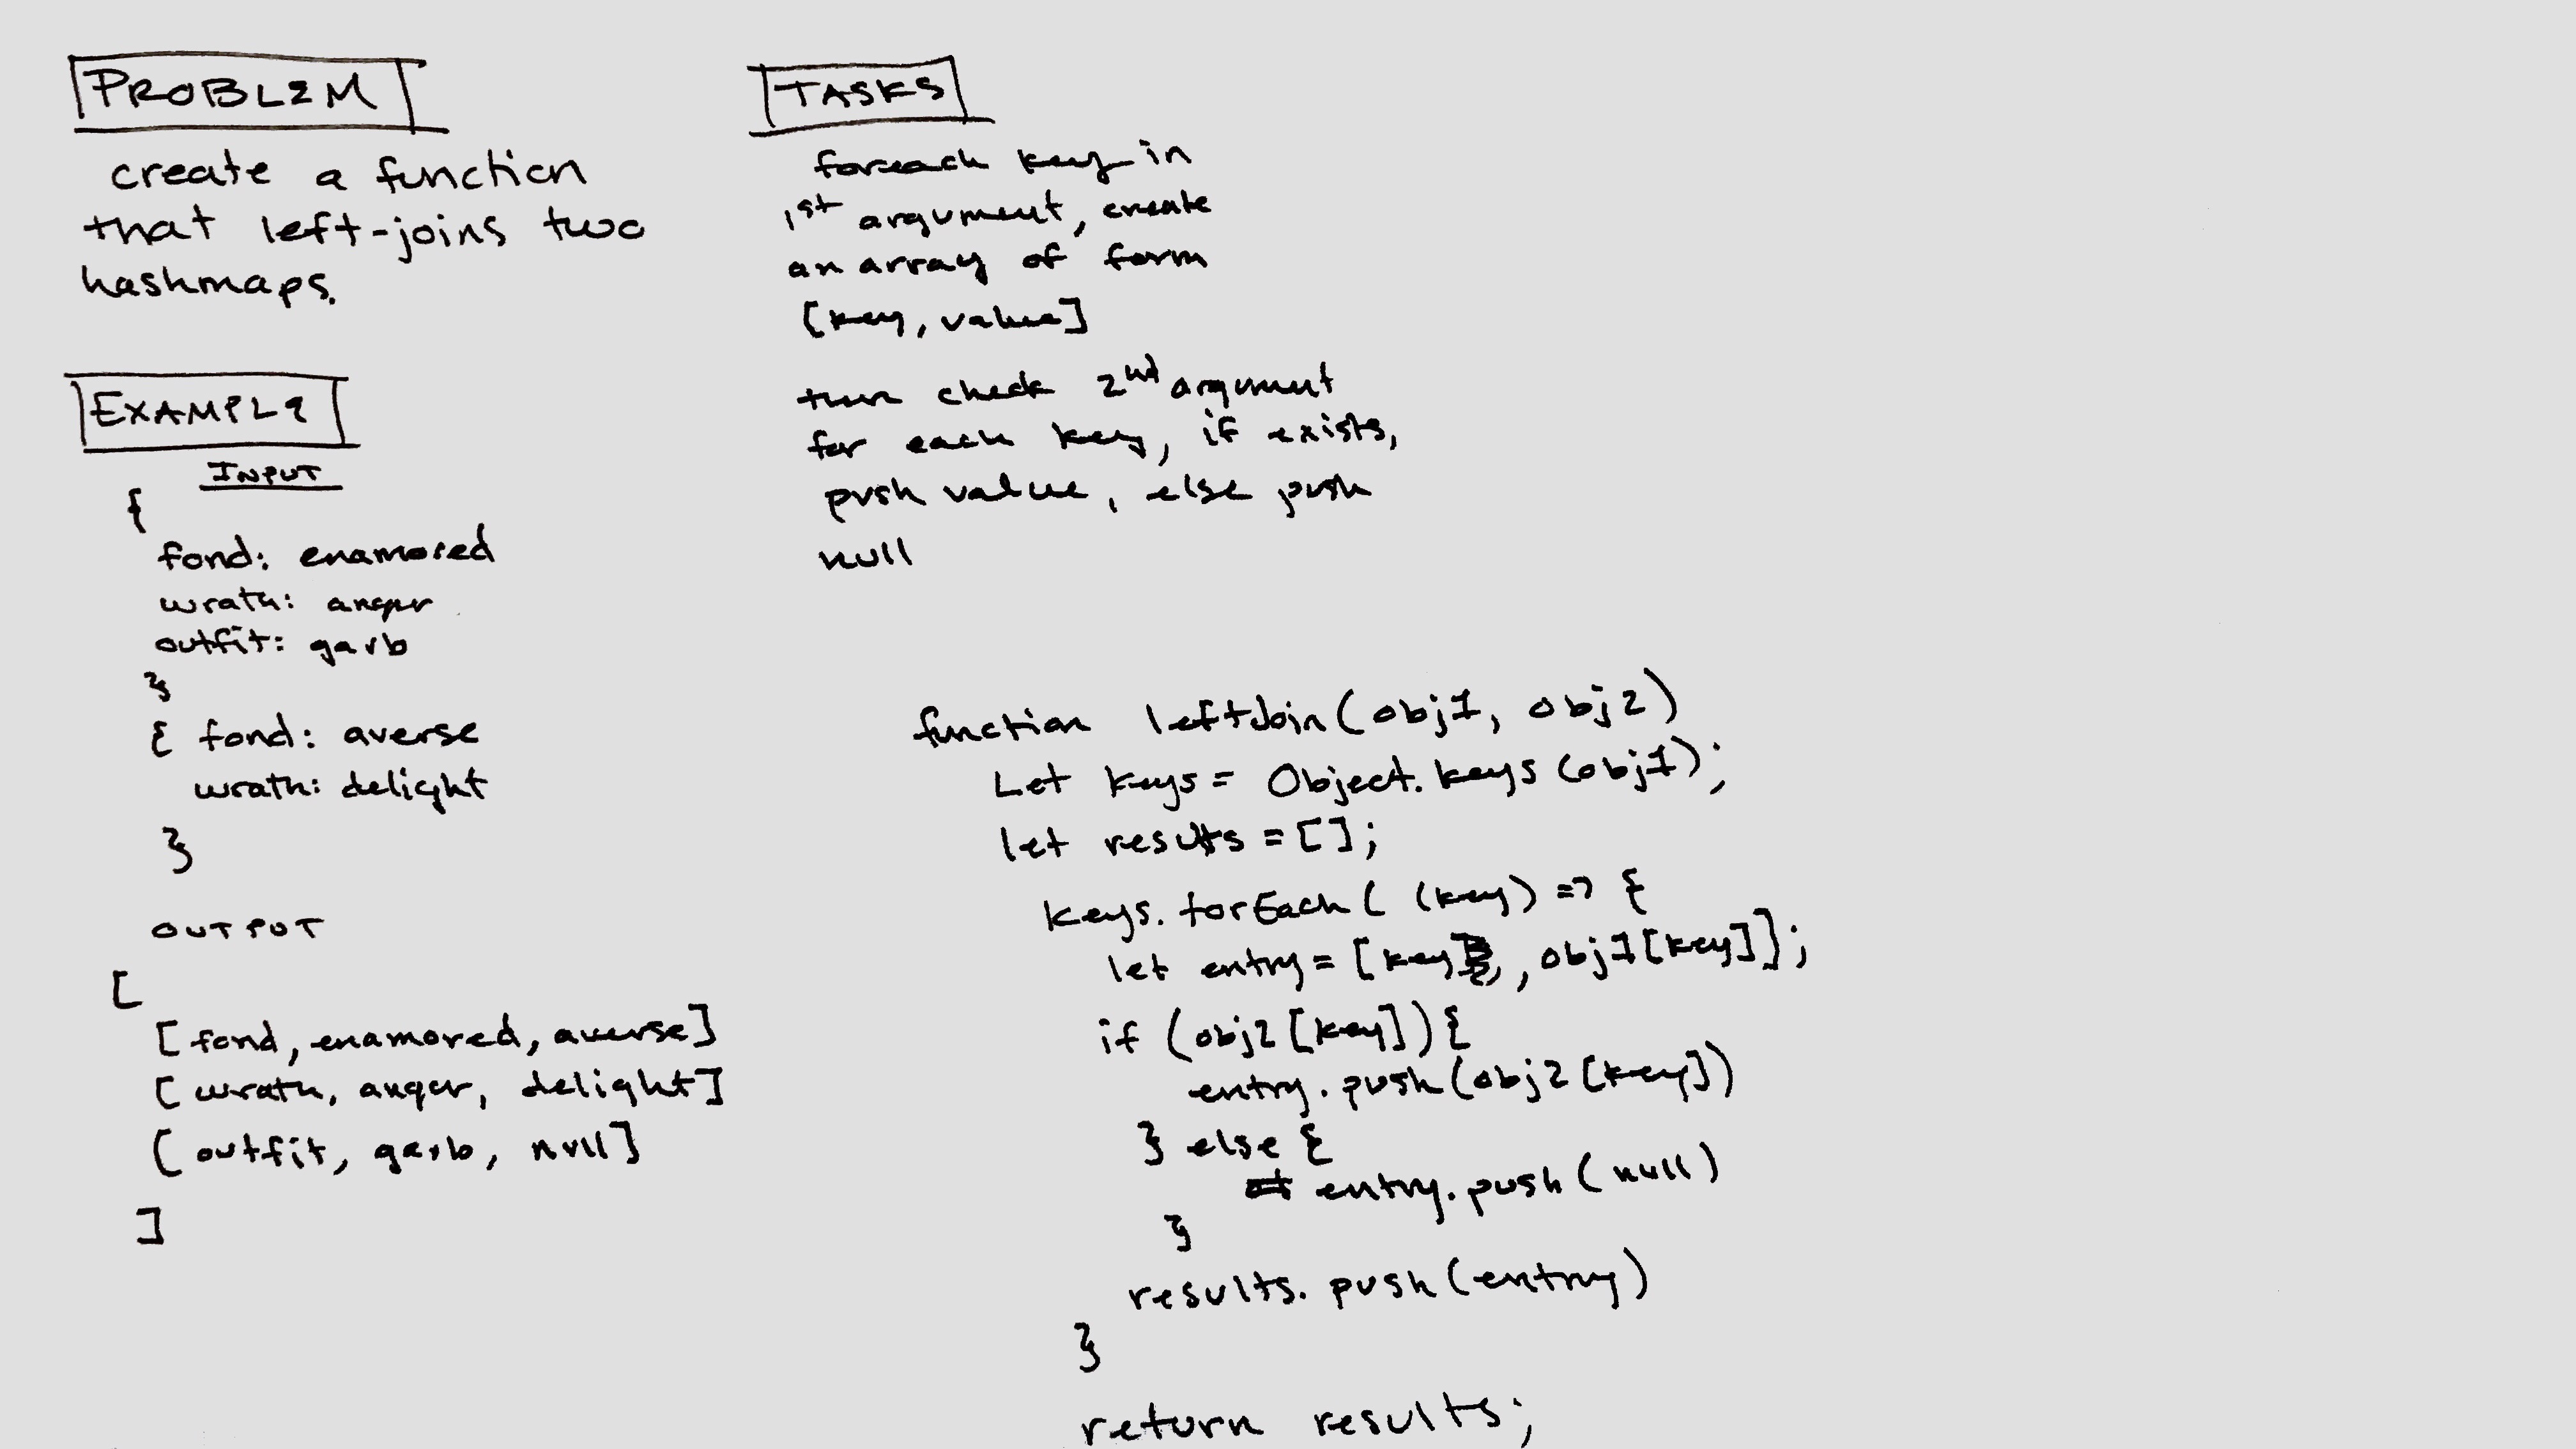 PROBLEM
create a function
that left-joins two
hashmaps.
EXAMPLE
INPUT
{
fond: enamored
wrath: anger
outfit: garb
}
{ fond: averse
wrath: delight
}
OUTPUT
[
[fond, enamored, averse]
[wrath, anger, delight]
[outfit, garb, null]
]
TASKS
foreach key in
1st argument, create
an array of form
[key, value]
then check 2nd argument
for each key, if exists,
push value, else push
null
function leftJoin(obj1, obj2)
Let keys = Object.keys(obj1);
let results = [];
keys.forEach( (key) => {
let entry = [key, obj1[key]];
if (obj2[key]){
entry.push(obj2[key])
} else {
entry.push(null)
}
results.push(entry)
}
return results;